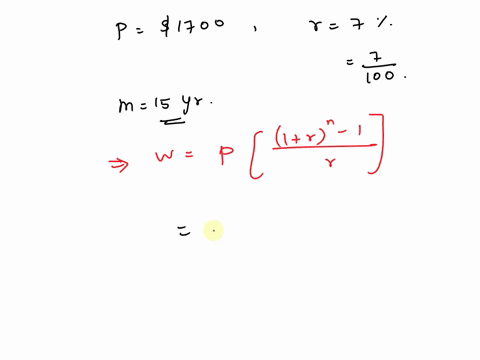 P = $1700 , r = 7 %
= 7/100.
m = 15 yr.
⇒ W = P [ ((1+r)^n - 1)/r ]
=